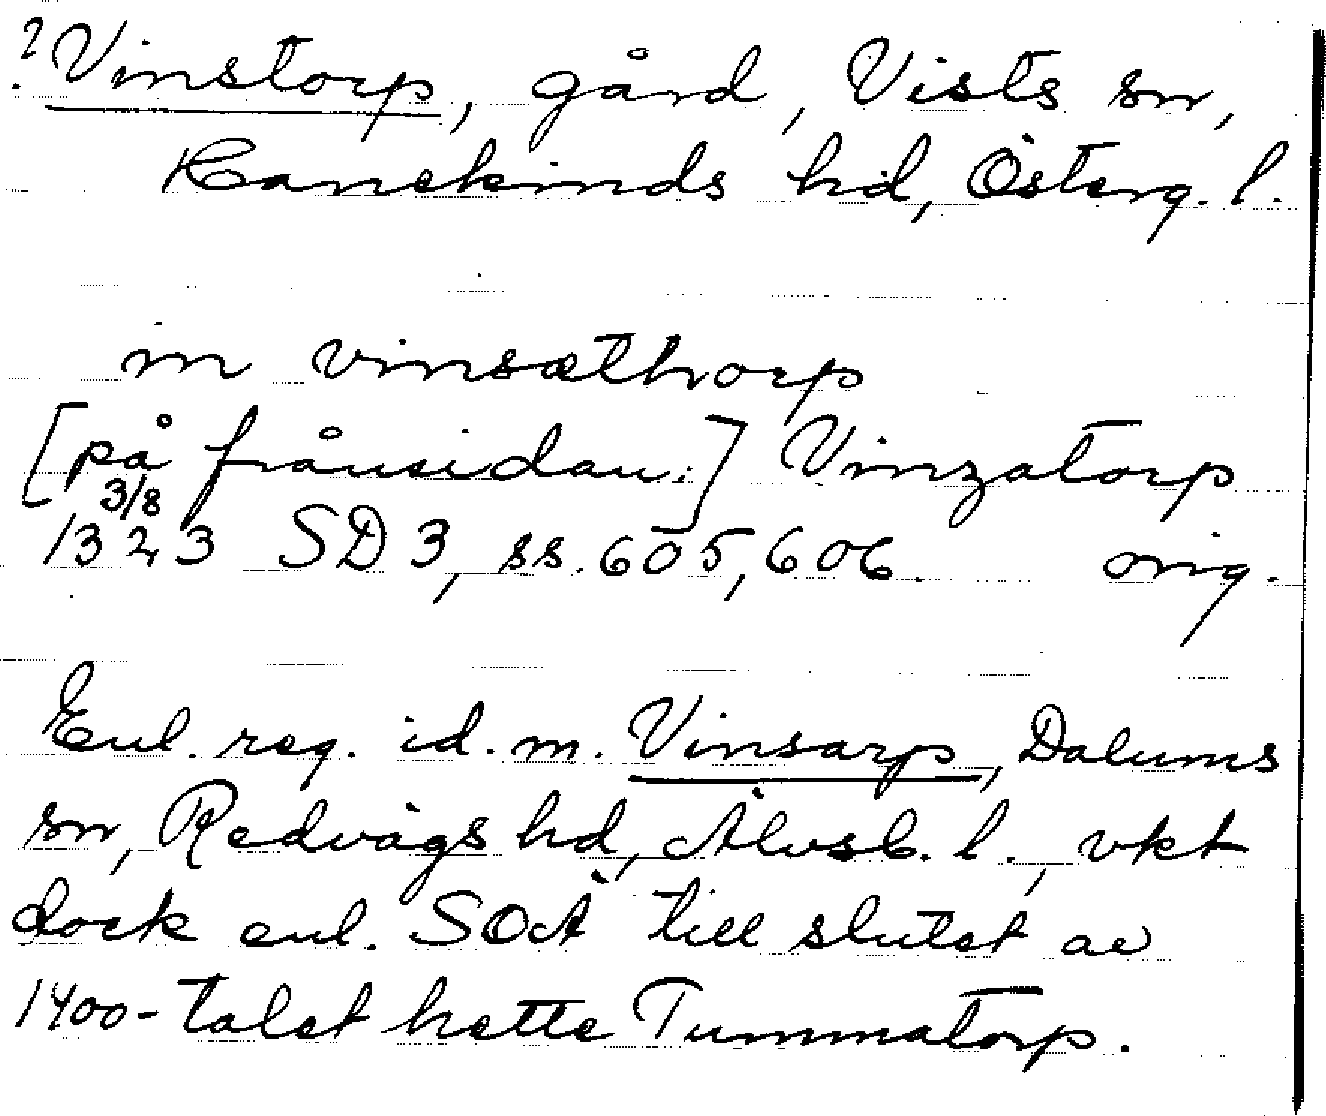 ? Vinstorp, gård, Vists sn,
Hanekinds hd, Österg. l.
in vinsæthorp
[på frånsidan:] Vinzatorp
3/8
1323 SD 3, ss. 605, 606. orig.
Enl. reg. id. m. Vinsarp, Dalums
sn, Redvägs hd, Älvsb. l., vkt
dock enl. SOÄ till slutet av
1400-talet hette Tummatorp.